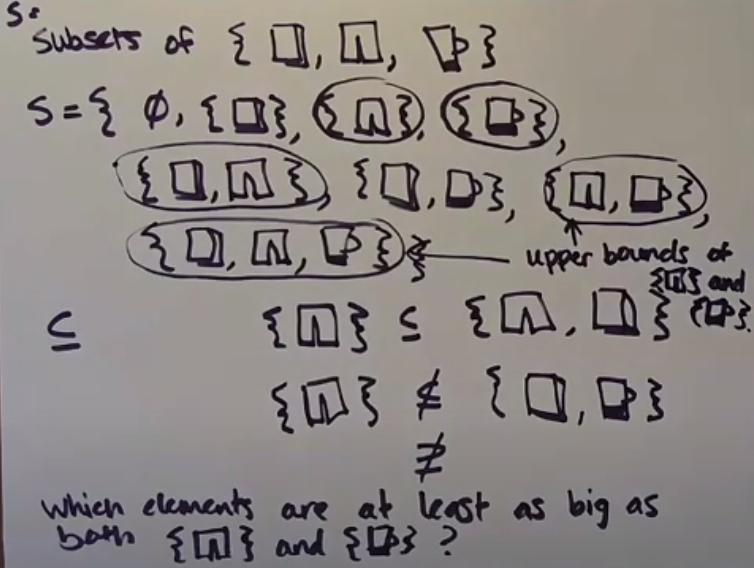 S:
Subsets of { , , }
S = { ∅, { }, { }, { },
{ , }, { , }, { , },
{ , , } }
upper bounds of
{ } and
{ }.
⊆ { } ⊆ { , }
{ } ⊈ { , }
⊉
Which elements are at least as big as
both { } and { } ?